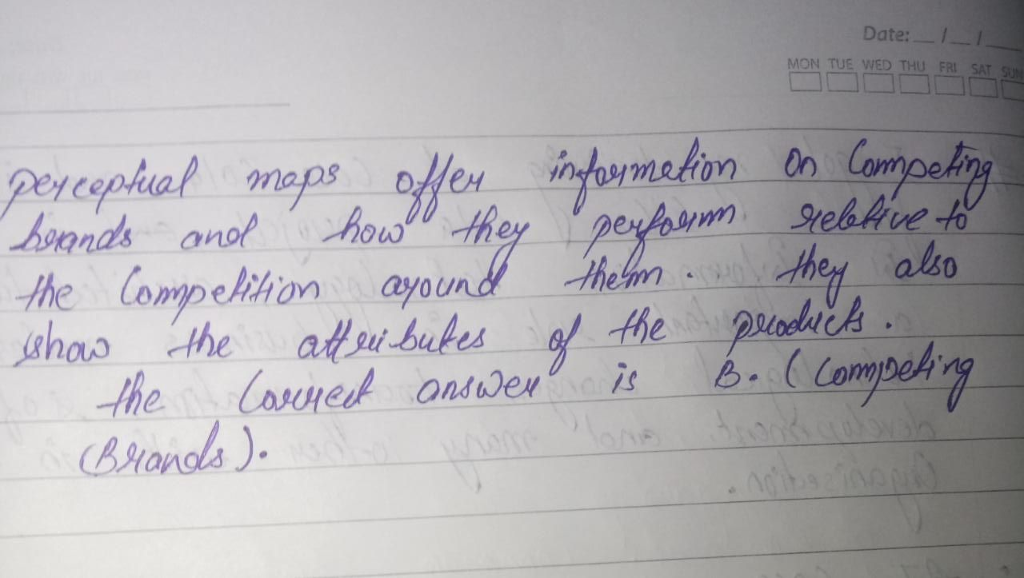 Date: __/__/__
MON TUE WED THU FRI SAT SUN
perceptual maps offer information on Competing
brands and how they perform relative to
the Competition around them. they also
show the attributes of the products.
the Correct answer is B. (Competing
(Brands).